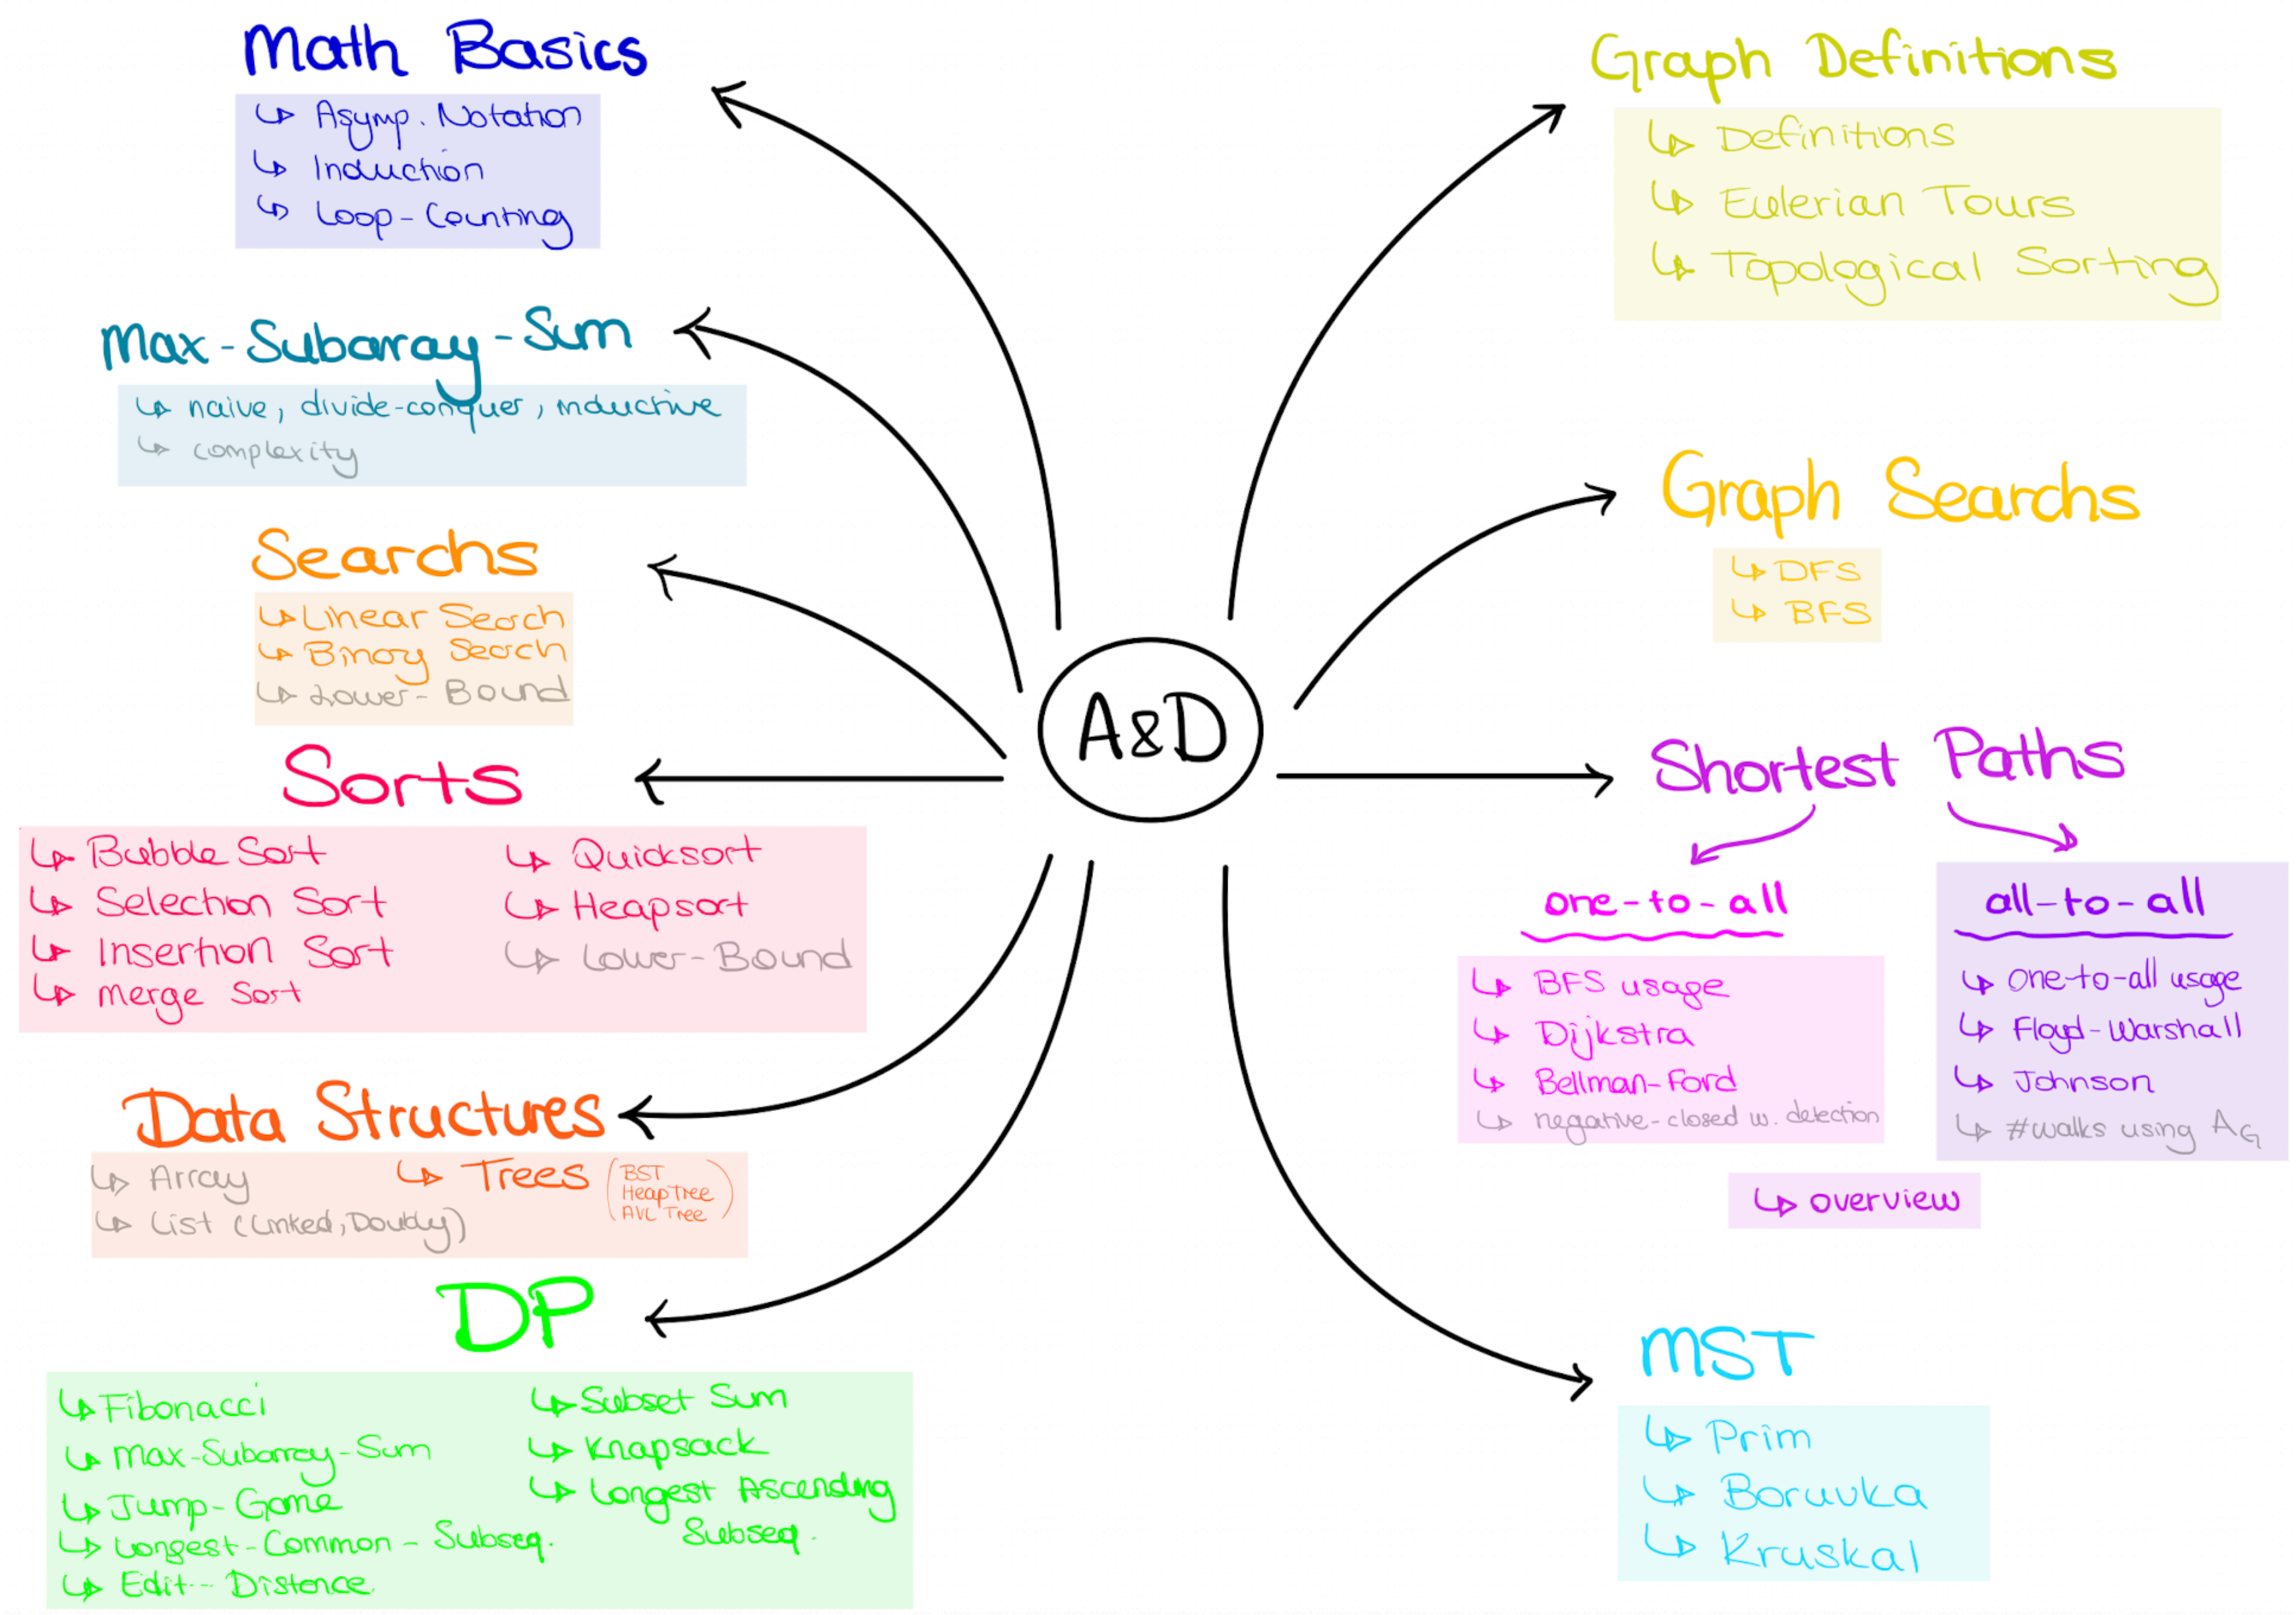 Math Basics
Asymp. Notation
Induction
Loop-Counting
Max-Subarray-Sum
naive, divide-conquer, inductive
complexity
Searchs
Linear Search
Binary Search
Lower-Bound
Sorts
Bubble Sort
Selection Sort
Insertion Sort
Merge Sort
Quicksort
Heapsort
Lower-Bound
Data Structures
Array
List (Linked, Doubly)
Trees (BST
HeapTree
AVL Tree)
DP
Fibonacci
Max-Subarray-Sum
Jump-Game
Longest-Common-Subseq.
Edit-Distence
Subset Sum
Knapsack
Longest Ascending
Subseq.
A&D
Graph Definitions
Definitions
Eulerian Tours
Topological Sorting
Graph Searchs
DFS
BFS
Shortest Paths
one-to-all
BFS usage
Dijkstra
Bellman-Ford
negative-closed w. detection
all-to-all
one-to-all usage
Floyd-Warshall
Johnson
#walks using A_G
overview
MST
Prim
Boruvka
Kruskal